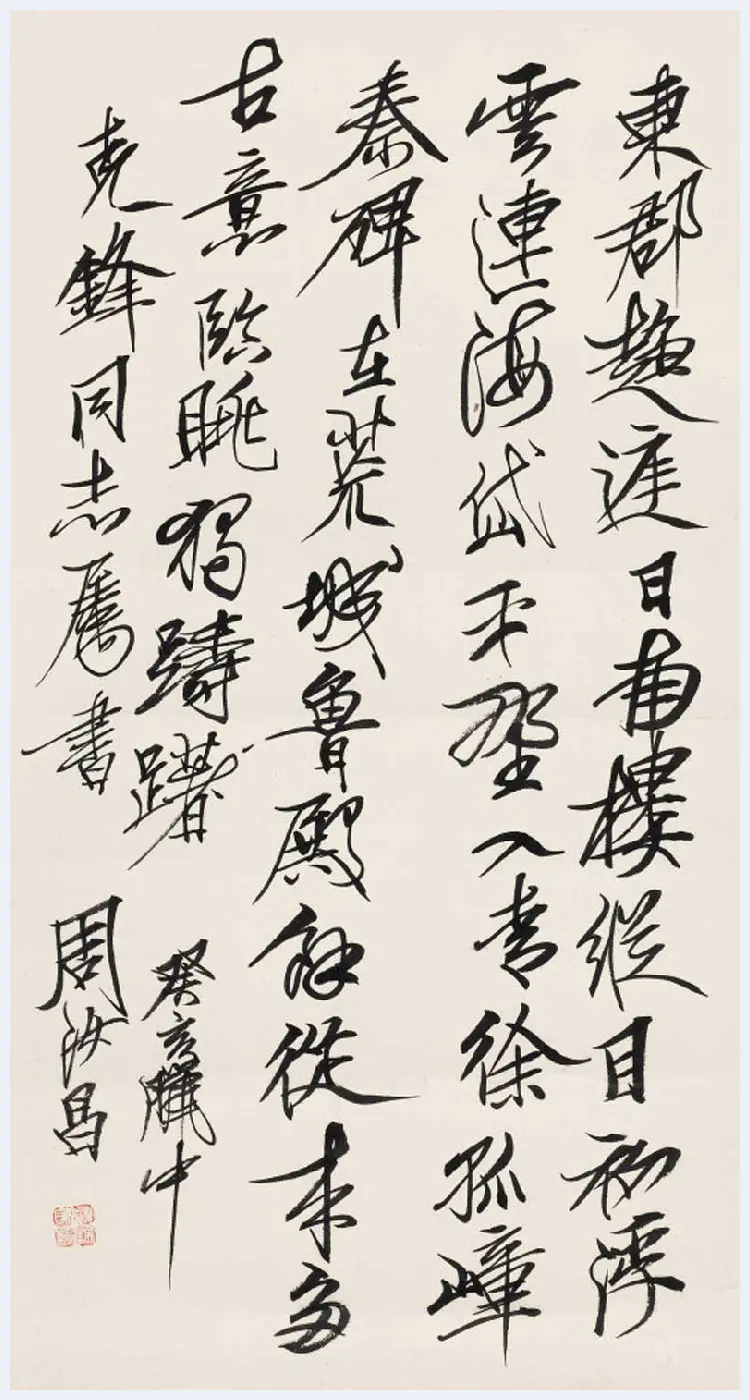 東郡趨庭日南樓縱目初浮
雲連海岱平野入青徐孤嶂
秦碑在荒城魯殿餘從來多
古意臨眺獨躊躇
克鋒同志屬書
癸亥臘中
周汝昌